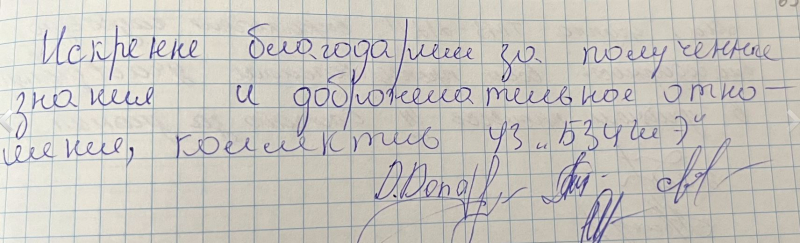 Искренне благодарим за полученные
знания и доброжелательное отно-
шение, коллектив УЗ „БЗЧЦГЭ“